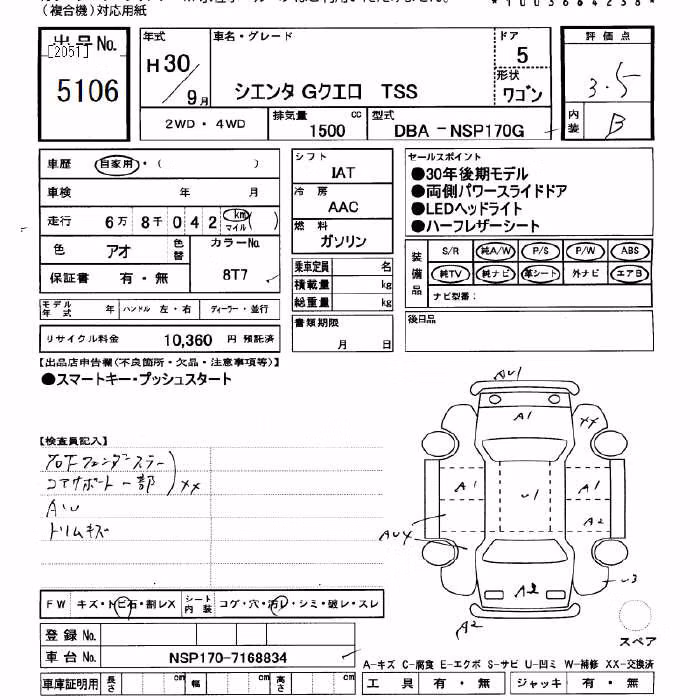 （複合機）対応用紙
*1003684238*
出品No.
[2051]
5106
年式
H30/9月
車名・グレード
シエンタ Gクエロ TSS
ドア
5
形状
ワゴン
評価点
3.5
内装
B
2WD・4WD
排気量 1500 cc
型式 DBA-NSP170G
車歴 自家用・( )
車検 年 月
走行 6万8千042 km マイル ( )
色 アオ 色替
カラーNo. 8T7
保証書 有・無
モデル年式 年 ハンドル 左・右 ディーラー・並行
リサイクル料金 10,360 円 預託済
シフト
IAT
冷房
AAC
燃料
ガソリン
乗車定員 名
積載量 kg
総重量 kg
書類期限
月 日
セールスポイント
●30年後期モデル
●両側パワースライドドア
●LEDヘッドライト
●ハーフレザーシート
装備品
S/R 純A/W P/S P/W ABS
純TV 純ナビ 革シート 外ナビ エアB
ナビ型番：
後日品
【出品店申告欄(不良箇所・欠品・注意事項等)】
●スマートキー・プッシュスタート
【検査員記入】
コアサポート一部 XX
AU
トリムキズ
AU1
A1
XX
A1
U1
A1
A2
AU4
A2
U3
A2
スペア
FW キズ・トビ石・割レX シート内装 コゲ・穴・汚レ・シミ・破レ・スレ
登録No.
車台No. NSP170-7168834
A-キズ C-腐食 E-エクボ S-サビ U-凹ミ W-補修 XX-交換済
車庫証明用 長さ cm 幅 cm 高さ cm
工具 有・無 ジャッキ 有・無